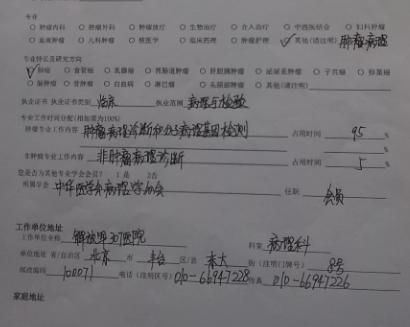 专业
○ 肿瘤内科 ○ 肿瘤外科 ○ 肿瘤放疗 ○ 生物治疗 ○ 介入治疗 ○ 中西医结合 ○ 妇科肿瘤
○ 血液肿瘤 ○ 儿科肿瘤 ○ 核医学 ○ 临床药理 ○ 肿瘤护理 ○ 其他(请注明) 肿瘤病理
专业特长及研究方向
○ 肺癌 ○ 食管癌 ○ 乳腺癌 ○ 胃肠道肿瘤 ○ 肝胆胰肿瘤 ○ 泌尿系肿瘤 ○ 子宫癌 ○ 卵巢癌
○ 脑肿瘤 ○ 骨肿瘤 ○ 白血病 ○ 淋巴瘤 ○ 头颈部肿瘤 ○ 其他(请注明)
执业证书 执业证书类别 临床 执业范围 病理与检验
专业工作时间分配(相加需为100%)
肿瘤专业工作内容 肿瘤病理诊断 病理基因检测 占用时间 95 %
%
非肿瘤专业工作内容 非肿瘤病理诊断 占用时间 5 %
您是否为其他专业学会会员? 1 是 2否
所属学会 中华医学会病理学分会 任职 会员
工作单位地址
工作单位全称 解放军307医院 科室 病理科
单位地址 省/自治区 北京 市 丰台 区/县 东大 街(注明门牌号) 8号
邮政编码 100071 电话(注明区号) 010-66947228 传真 010-66947226
家庭地址